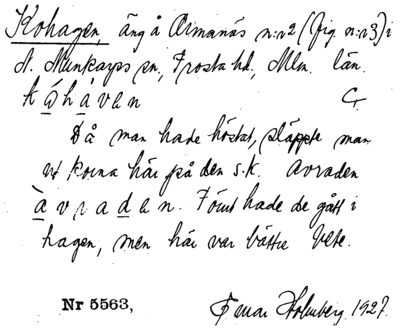 Kohagen, äng å Ormanäs n:r 2 (fig. n:r 3) i
N. Munkarps sn, Frosta hd, Mlm. län.
kåhaven
Då man hade höstat, släppte man
ut korna här på den s.k. avraden
àvraden. Först hade de gått i
hagen, men här var bättre bete.
Nr 5563, Holmberg. 1927.